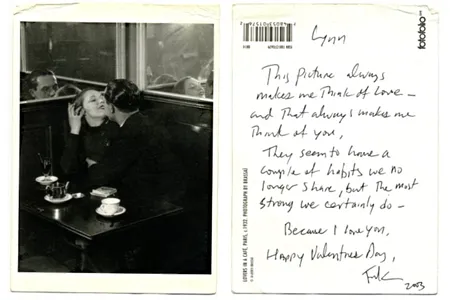 Lynn
This Picture always
makes me Think of Love –
and That always makes me
Think of you,
They seem to have a
couple of habits we no
longer share, but The most
strong we certainly do –
Because I love you,
Happy Valentines Day,
2003
fotofolio
LOVERS IN A CAFE, PARIS, c.1932. PHOTOGRAPH BY BRASSAÏ